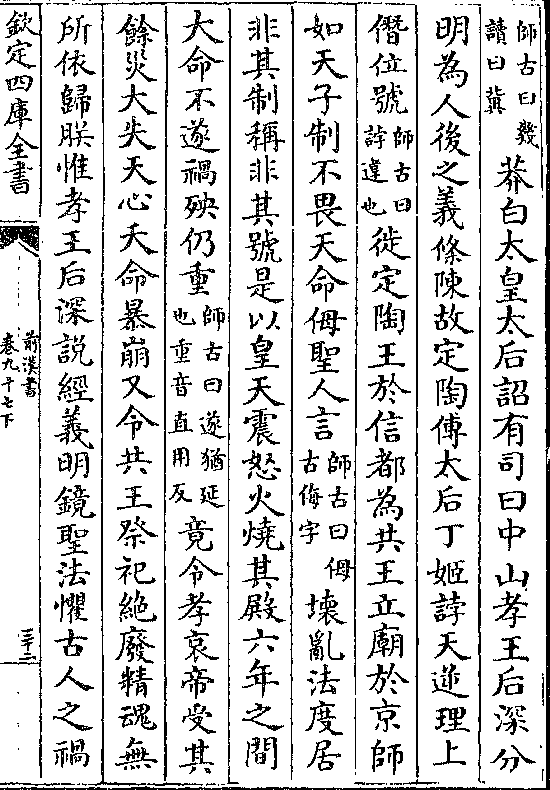 師古曰幾
讀曰兾
莽白太皇太后詔有司曰中山孝王后深分
明為人後之義條陳故定陶傅太后丁姬誖天逆理上
僭位號
師古曰
誖違也
徙定陶王於信都為共王立廟於京師
如天子制不畏天命侮聖人言
師古曰侮
古侮字
壞亂法度居
非其制稱非其號是以皇天震怒火燒其殿六年之間
大命不遂禍殃仍重
師古曰遂猶延
也重音直用反
竟令孝哀帝受其
餘災大失天心夭命暴崩又令共王祭祀絶廢精魂無
所依歸朕惟孝王后深說經義明鏡聖法懼古人之禍
欽定四庫全書
前漢書
卷九十七下
三十二